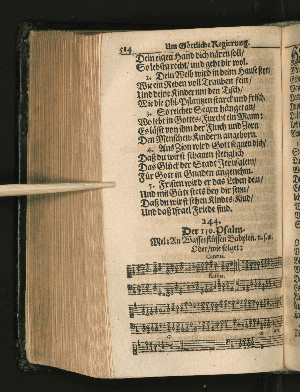 514 Um Göttliche Regierung.
Dein eigen Hand dich nären soll/
So lebstu recht/ und geht dir wol.
2. Dein Weib wird in deim Hause seyn/
Wie ein Reben voll Trauben fein/
Und deine Kinder um den Tisch/
Wie die Oel-Pflantzen starck und frisch.
3. So reicher Segen hangt an/
Wo lebt in Gottes-Furcht ein Mann:
Es läst von ihm der Fluch und Zorn
Den Menschen-Kindern angeborn.
4. Aus Zion wird Gott segnen dich/
Daß du wirst schauen stetiglich
Das Glück der Stadt Jerusalem/
Für Gott in Gnaden angenehm.
5. Fristen wird er das Leben dein/
Und mit Güte stets bey dir seyn/
Daß du wirst sehen Kindes-Kind/
Und daß Israel Friede find.
244.
Der 130. Psalm.
Mel: An Wasserflüssen Babylon. u.s.w.
Oder/ wie folget: